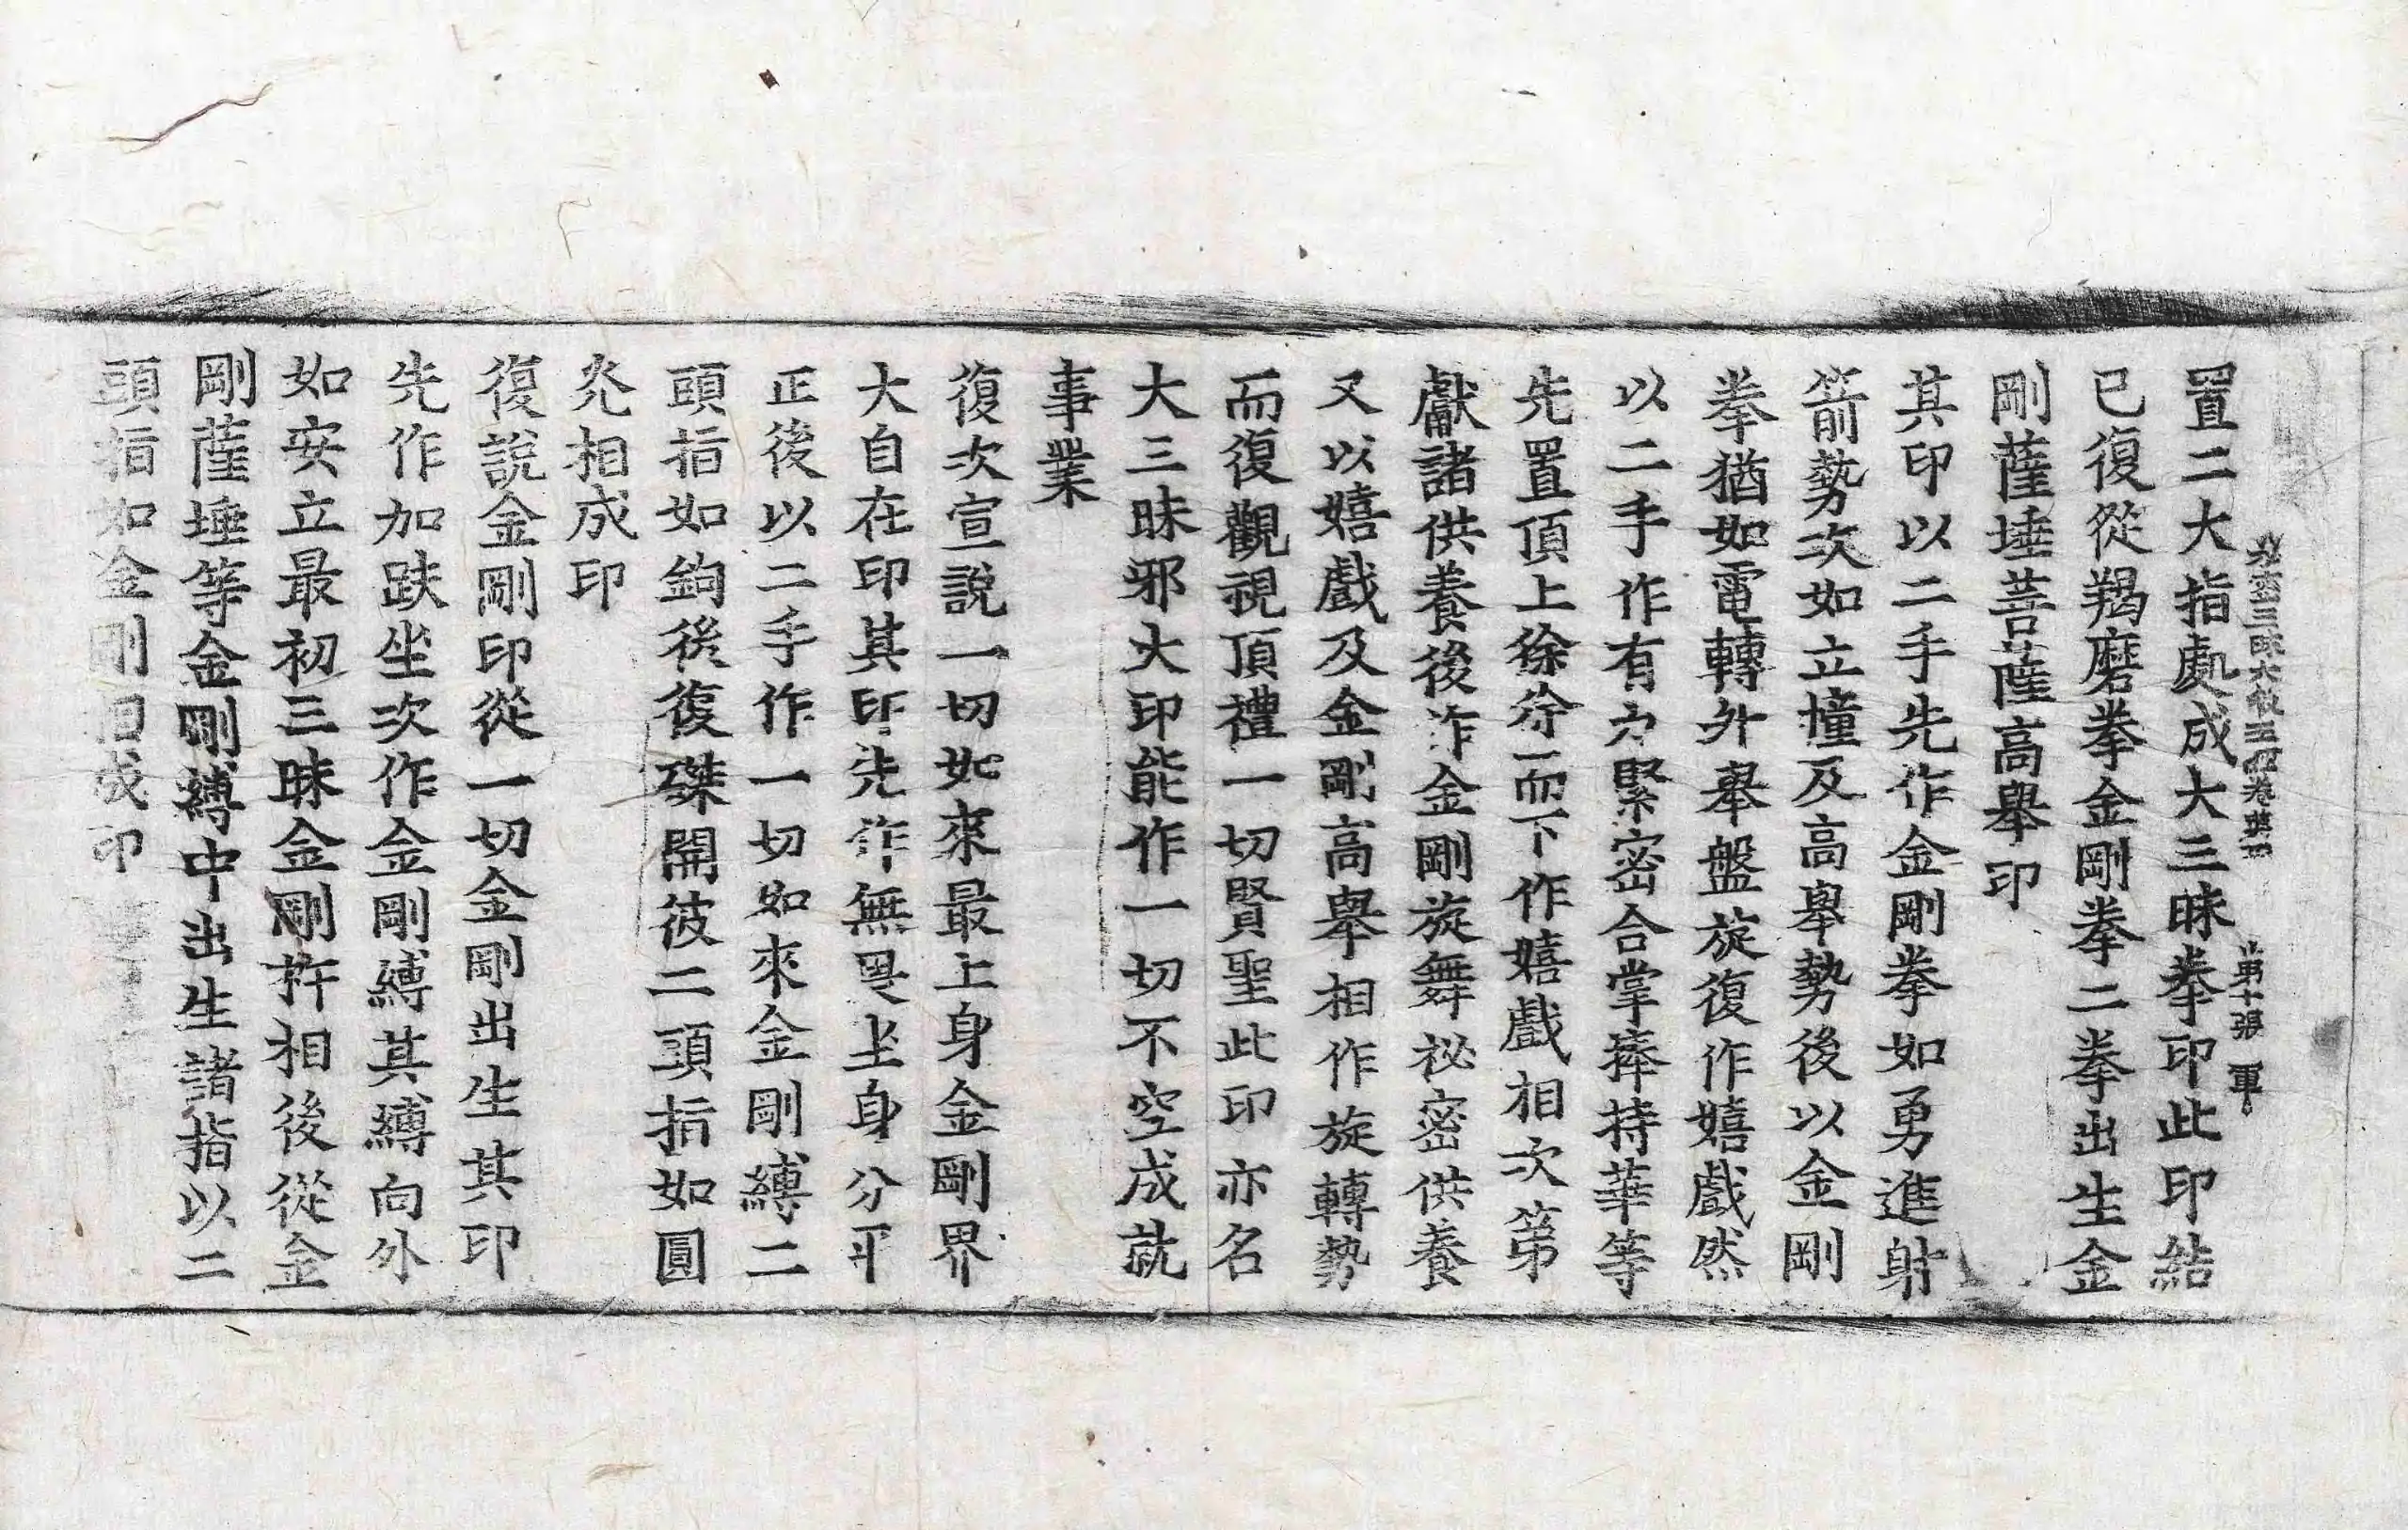 秘密三昧大教王經卷第四 第十張 軍
置二大指處成大三昧拳印此印結
已復從羯磨拳金剛拳二拳出生金
剛薩埵菩薩高舉印
其印以二手先作金剛拳如勇進射
箭勢次如立撞及高舉勢後以金剛
拳猶如電轉外舉盤旋復作嬉戲然
以二手作有力緊密合掌捧持華等
先置頂上徐徐而下作嬉戲相次第
獻諸供養後作金剛旋舞祕密供養
又以嬉戲及金剛高舉相作旋轉勢
而復觀視頂禮一切賢聖此印亦名
大三昧邪大印能作一切不空成就
事業
復次宣說一切如來最上身金剛界
大自在印其印先作無畏坐身分平
正後以二手作一切如來金剛縛二
頭指如鉤後復磔開彼二頭指如圓
光相成印
復說金剛印從一切金剛出生其印
先作加趺坐次作金剛縛其縛向外
如安立最初三昧金剛杵相後從金
剛薩埵等金剛縛中出生諸指以二
頭指如金剛相成印